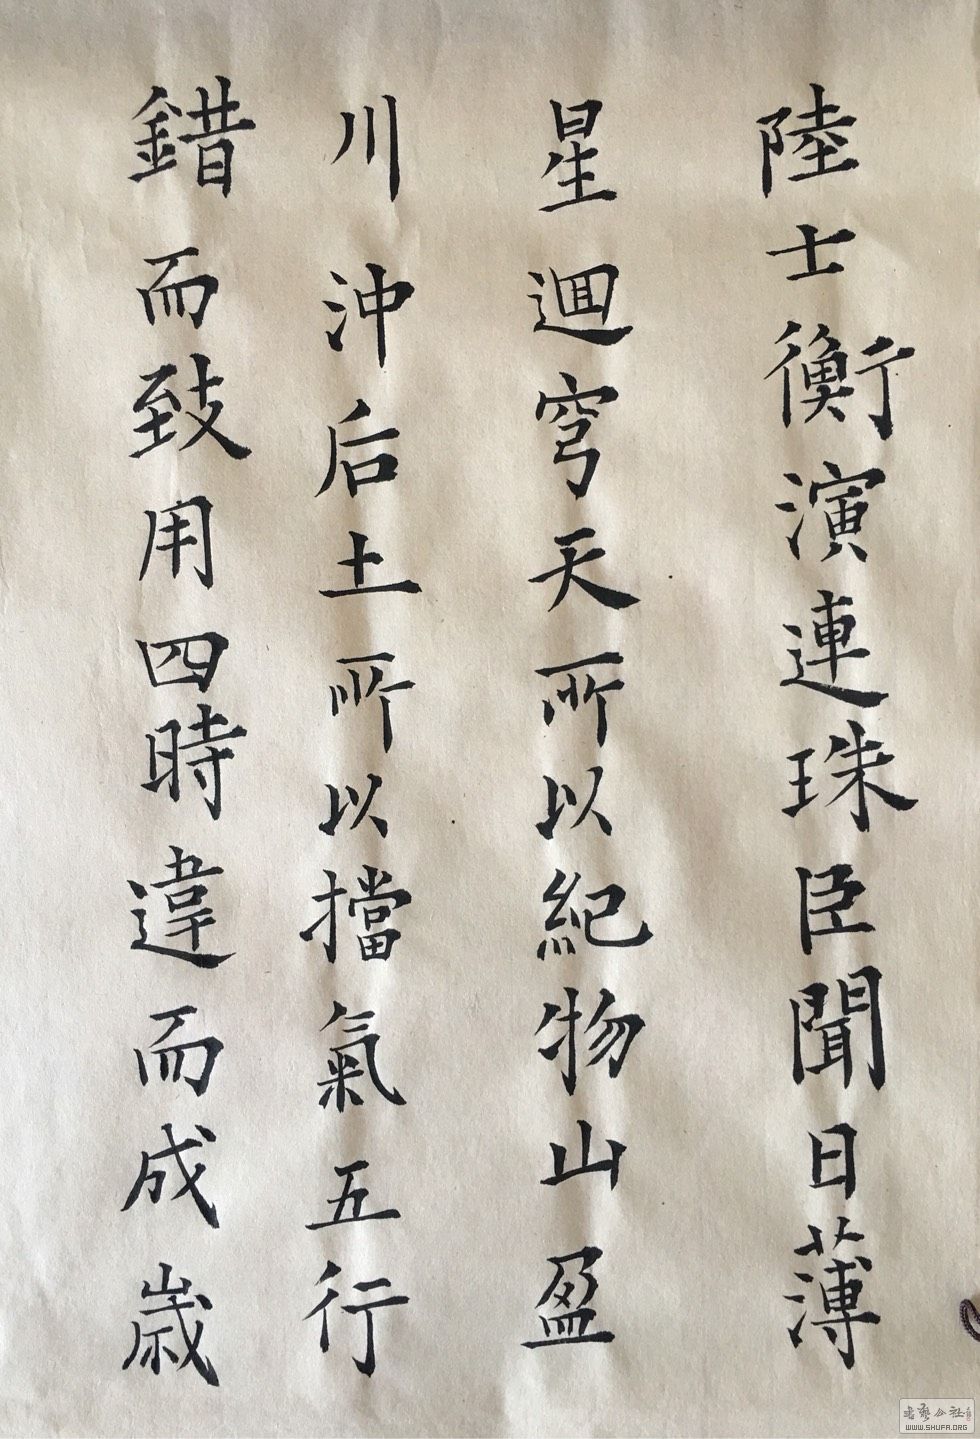 陸士衡演連珠臣聞日薄
星迴穹天所以紀物山盈
川沖后土所以擋氣五行
錯而致用四時違而成歲
WWW.SHUFA.ORG